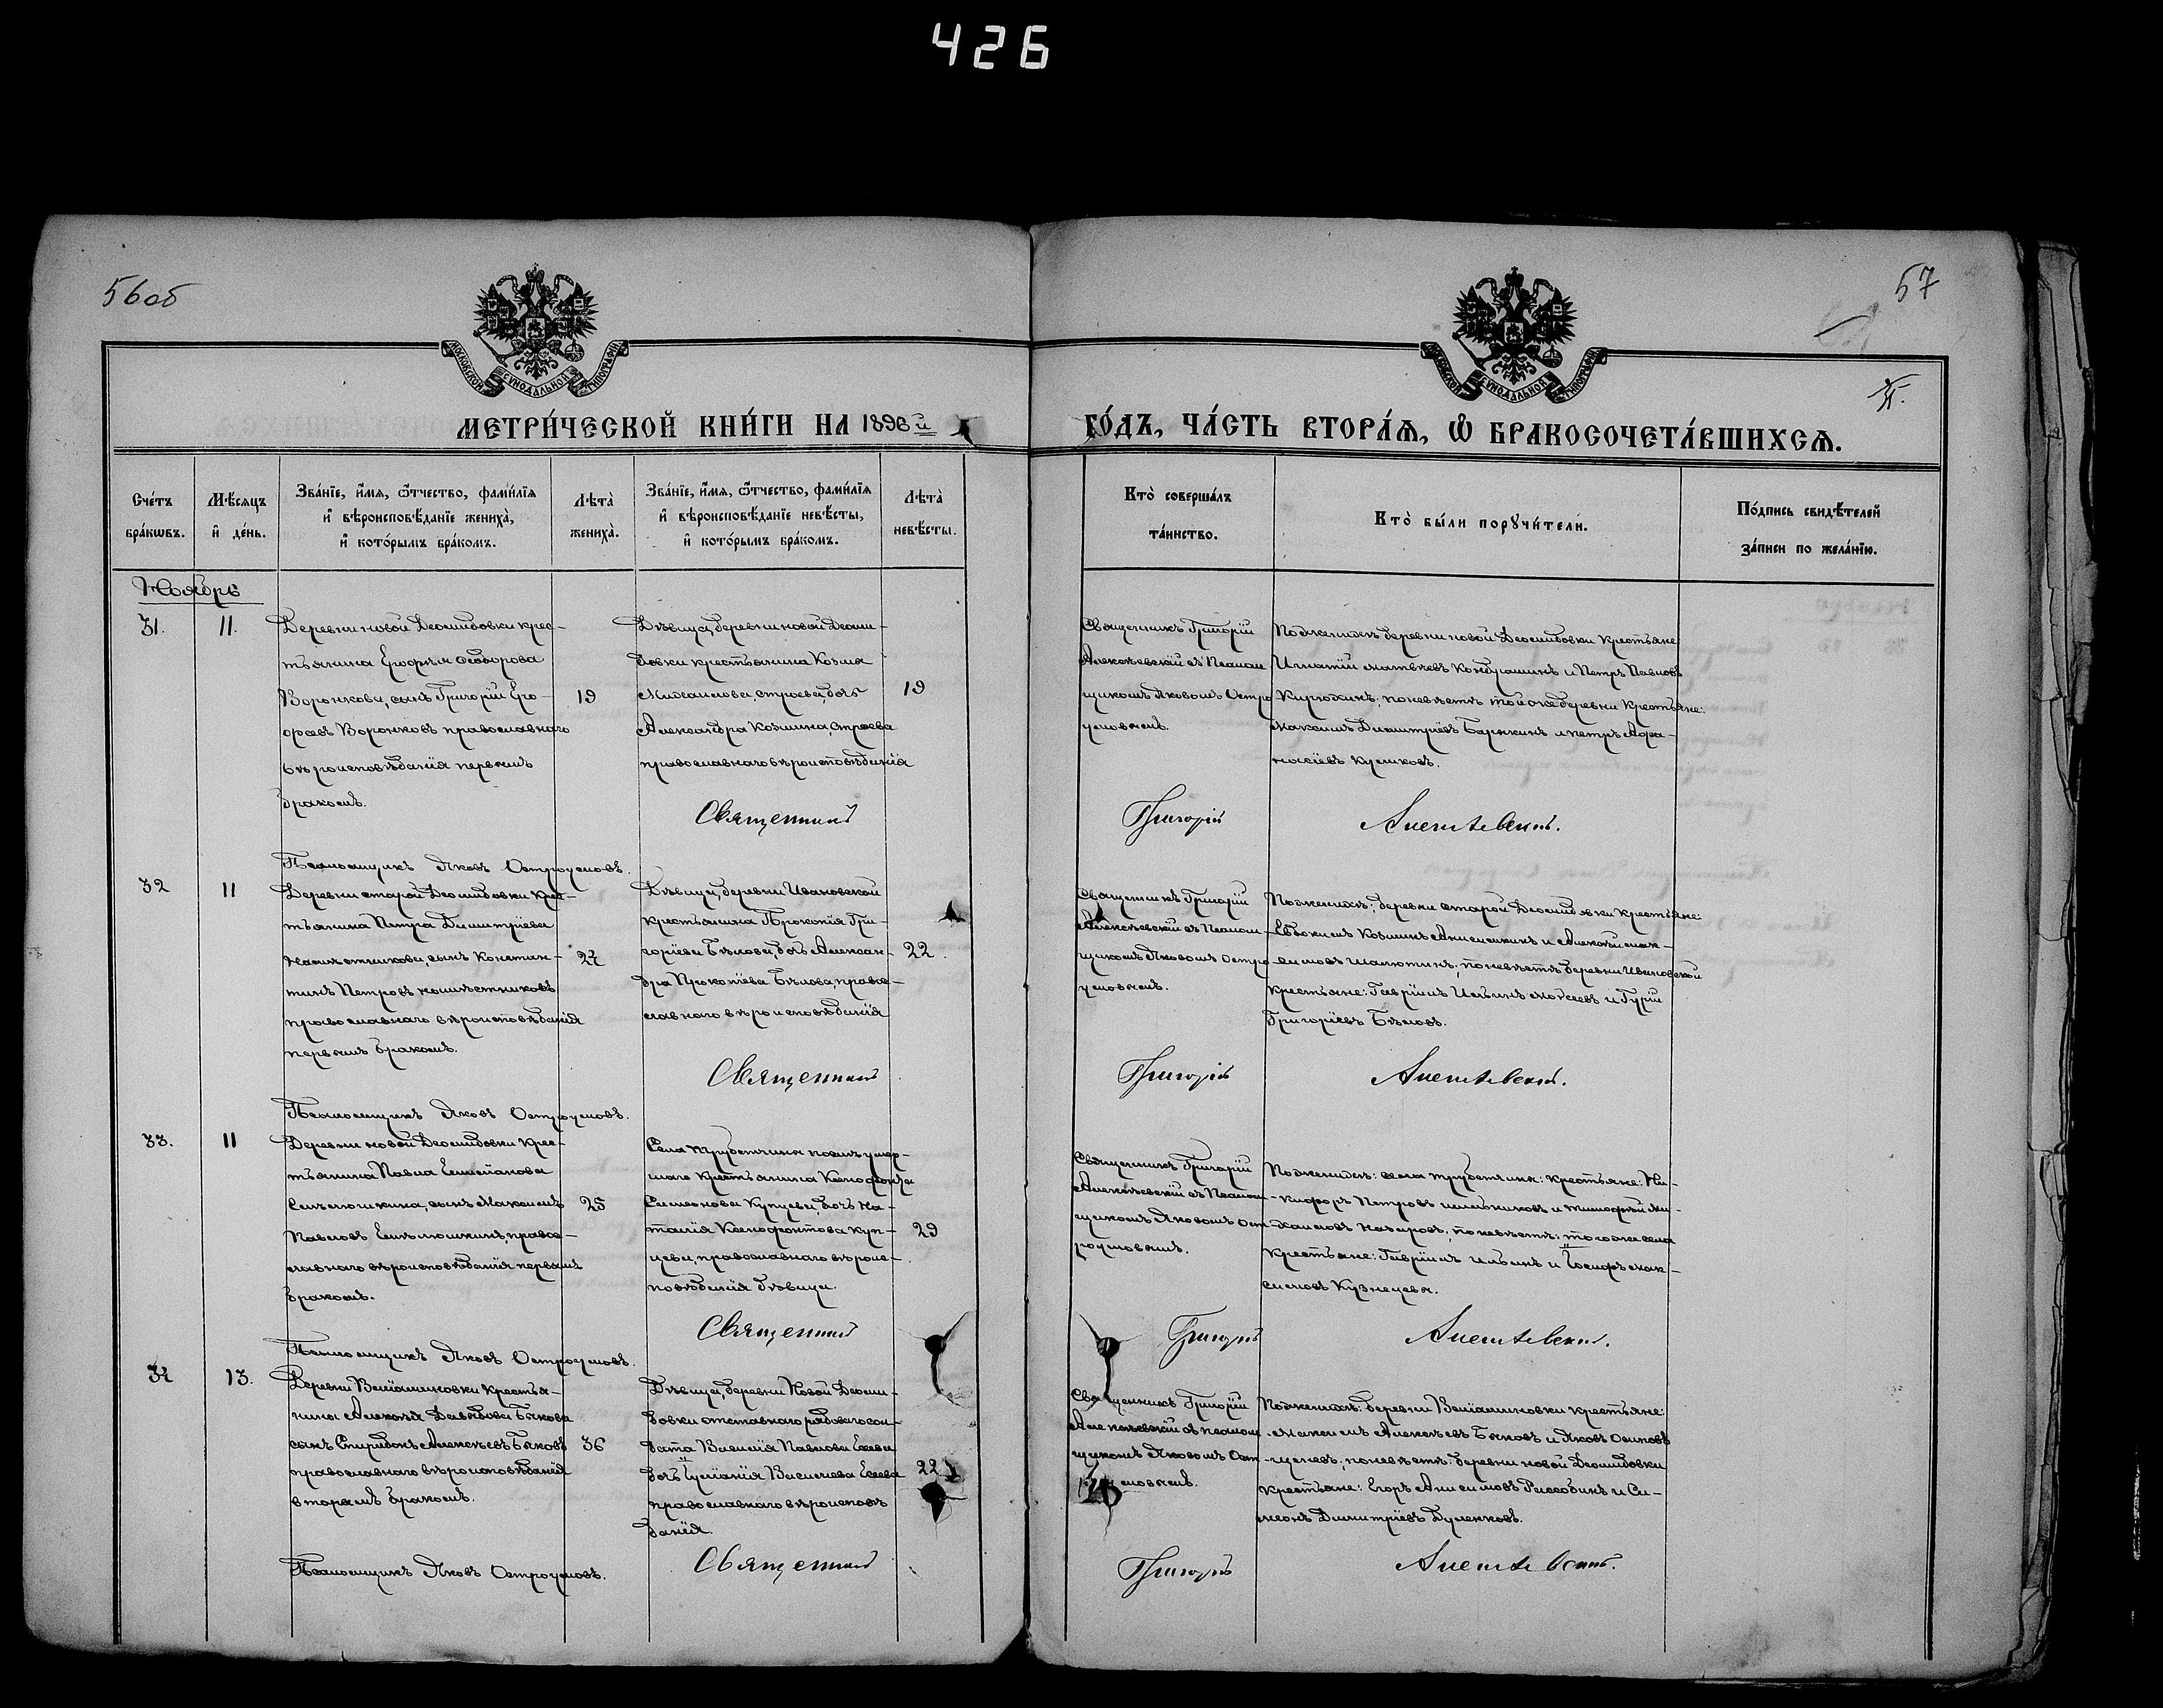 426
56об
57
МОСКОВСКОЙ СѴНОДАЛЬНОЙ ТИПОГРАФІИ
МОСКОВСКОЙ СѴНОДАЛЬНОЙ ТИПОГРАФІИ
МЕТРИ́ЧЕСКОЙ КНИ́ГИ НА 1896й
ГО́ДЪ, ЧА́СТЬ ВТОРА́Ѧ, Ѽ БРАКОСОЧЕТА́ВШИХСѦ.
Сче́тъ бра́кѡвъ.
Мѣ́сѧцъ и҆ де́нь.
Зва́нїе, и҆́мѧ, ѻ҆́тчество, фами́лїѧ и҆ вѣроисповѣ́данїе жениха̀, и҆ кото́рымъ бра́комъ.
Лѣта̀ жениха̀.
Зва́нїе, и҆́мѧ, ѻ҆́тчество, фами́лїѧ и҆ вѣроисповѣ́данїе невѣ́сты, и҆ кото́рымъ бра́комъ.
Лѣта̀ невѣ́сты.
Кто̀ соверша́лъ та́инство.
Кто̀ бы́ли порꙋчи́тели.
По́дпись свидѣ́телей за́писи по жела́нїю.
Ноябрь
31.
11.
Деревни новой Деомидовки крес-
тьянина Ерофѣя Феодорова
Воронкова, сынъ Григорій Еро-
феевъ Воронковъ православнаго
вѣроисповѣданія первымъ
бракомъ.
19
Дѣвица, деревни новой Деоми-
довки крестьянина Козмы
Михаилова Строева, дочь
Александра Козмина Строева
православнаго вѣроисповѣданія
19
Священникъ Григорій
Алексѣевскій съ Псалом
щикомъ Яковомъ Остро
умовымъ.
По женихѣ деревни новой Деомидовки крестьяне:
Игнатій Матвѣевъ Кондрашинъ и Петръ Павловъ
по невѣстѣ той же деревни Крестьяне:
Максимъ Димитріевъ Барыкинъ и Петръ Афа-
насіевъ Куликовъ.
Священникъ
Григорій
Алексѣевскій.
Псаломщикъ Яковъ Остроумовъ.
32
11
Деревни старой Деомидовки крес-
тьянина Петра Димитріева
Намѣстникова, сынъ Констан-
тинъ Петровъ Намѣстниковъ
православнаго вѣроисповѣданія
первымъ бракомъ.
Дѣвица, деревни Ивановской
крестьянина Прокопія Гри-
горіева Бѣлова, дочь Алексан-
дра Прокопіева Бѣлова, право-
славнаго вѣроисповѣданія
22.
Священникъ Григорій
Алексѣевскій съ Псалом-
щикомъ Яковомъ Остро
умовымъ.
По женихѣ: деревни старой Деомидовки крестьяне:
Евдокимъ Козминъ Анисимкинъ и Алексѣй Мак-
симовъ по невѣстѣ деревни Ивановской
крестьяне: Гавріилъ Ильинъ Моѵсеевъ и Гурій
Григоріевъ Бѣловъ.
Священникъ
Григорій
Алексѣевскій.
Псаломщикъ Яковъ Остроумовъ.
33.
11
Деревни новой Деомидовки крес-
тьянина Павла Емеліанова
сынъ Максимъ
Павловъ право-
славнаго вѣроисповѣданія первымъ
бракомъ.
25
Села Трубетчина умер-
шаго крестьянина Ксенофонта
Симеонова Купцова, дочь На-
талія Ксенофонтова Куп-
цова, православнаго вѣроис-
повѣданія дѣвица.
29
Священникъ Григорій
Алексѣевскій съ Псалом-
щикомъ Яковомъ Ост-
роумовымъ.
По женихѣ: села Трубетчина: крестьяне: Ни-
кифоръ Петровъ и Тимофей Ми-
хаиловъ Назаровъ, по невѣстѣ: того же села
крестьяне: Гавріилъ Ильинъ и Іосифъ Мак-
симовъ Кузнецовы.
Священникъ
Григорій
Алексѣевскій.
Псаломщикъ Яковъ Остроумовъ.
34
13.
Деревни Веніаминовки крестья-
нина Алексѣя Давыдова Быкова
сынъ Спиридонъ Алексѣевъ Быковъ
православнаго вѣроисповѣданія
вторымъ бракомъ.
36
Дѣвица, деревни Новой Деоми-
довки отставнаго рядоваго сол-
дата Василія Павлова Евсева
дочь Іуліанія Васильева Евсева
православнаго вѣроисповѣ
данія.
22
Священникъ Григорій
Алексѣевскій съ псалом
щикомъ Яковомъ Ост-
роумовымъ.
По женихѣ: деревни Веніаминовки крестьяне:
Максимъ Алексѣевъ Быковъ и Яковъ Осиповъ
по невѣстѣ: деревни новой Деомидовки
крестьяне: Егоръ Анисимовъ и Си-
меонъ Димитріевъ Дуленковъ.
Священникъ
Григорій
Алексѣевскій.
Псаломщикъ Яковъ Остроумовъ.